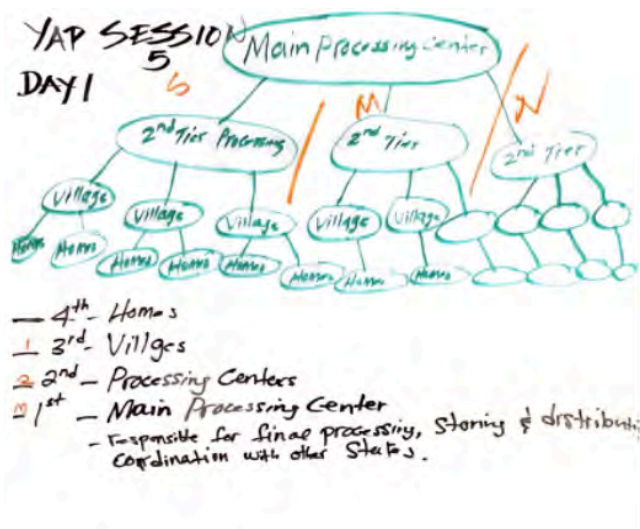 YAP SESSION
5
DAY 1
Main Processing Center
S
M
N
2nd Tier Processing
2nd Tier
2nd Tier
Village
Village
Village
Village
Village
Homes
Homes
Homes
Homes
Homes
Homes
Homes
Homes
— 4th - Homes
1 3rd - Villges
2 2nd — Processing Centers
1st — Main Processing Center
- responsible for final processing, storing & distributi
cordination with other States.